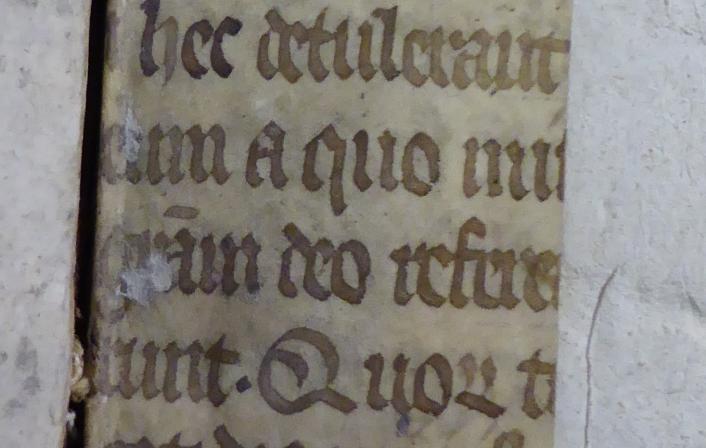 hec detulerant
cum a quo mu
gr̄am deo refere
unt. Quoꝝ t